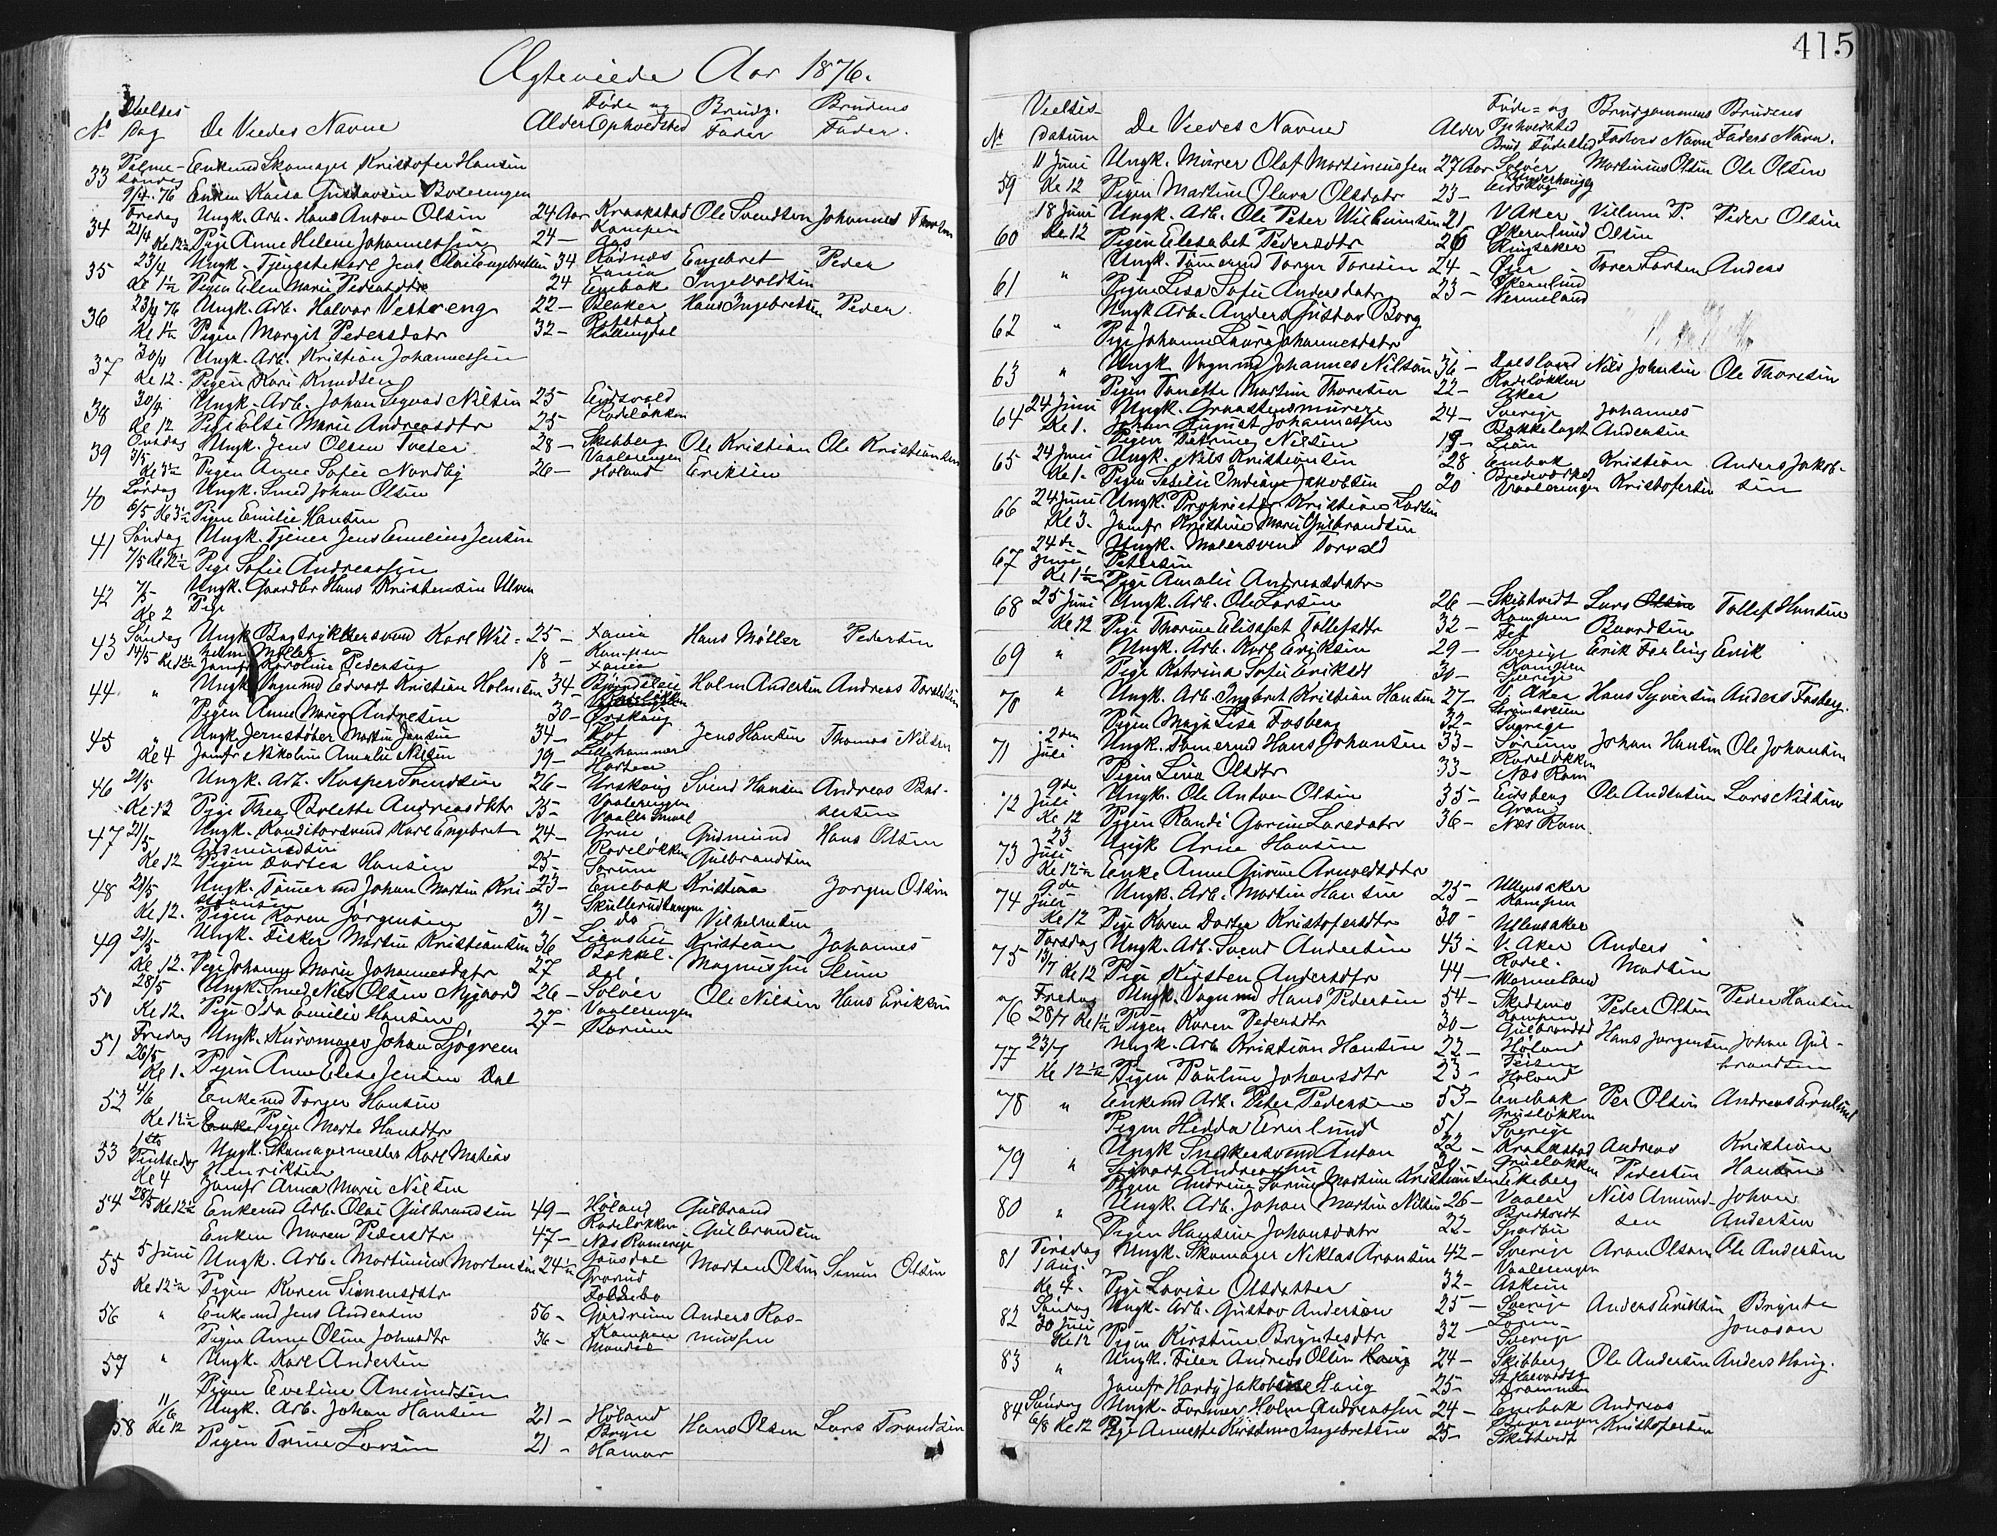 Ægteviede Aar 1876.
415
No Vielses Dag De Viedes Navne Alder Føde og Opholdsted Brudg. Fader Brudens Fader.
33 Palme- Enkemd Skomager Kristofer Hansen
søndag
9/4 76 Enken Kaisa Gustavsen Boleringen
34 Fredag Ungk. Arb. Hans Anton Olsen 24 Aar Kraakstad Ole Svendsen Johannes
21/4 Kampen
Pige Anne Helene Johannessen 24 — Aas
35 23/4 Ungk. Tjenestekarl Jens Olai Engebretsen 34 Engebret Peder
Pigen Elen Marie Pedersdtr 24 Enebak Ingeboldsen
36 23/4 76 Ungk. Arb. Halvor Vestreng 22 — Blaker Hans Ingebretsen Peder.
Pigen Margit Pedersdatr 32 — Hallingdal
37 30/4 Ungk. Arb. Kristian Johannessen
Kl 12. Pigen Kari Knudsen
38 30/4 Ungk. Arb. Johan Segvad Nilsen 25 — Eidsvold
Kl 12 Pige Else Marie Andreasdtr 25 — Rodeløkken
39 Onsdag Ungk. Jens Olsen Tveter 28 — Skibberg Ole Kristian Ole Kristiansen
3/5 Vaaleringen
Pigen Anne Sofie Nordby 26 — Høland Eriksen
40 Lørdag Ungk. Smed Johan Olsen
6/5 Kl 3 1/2 Pigen Emilie Hansen
41 Søndag Ungk. Tjener Jens Emelius Jensen
7/5 Kl 12 1/2 Pige Sofie Andreassen
42 7/5 Ungk. Gaardbr Hans Kristensen Ulven
Kl 2 Pige
43 Søndag Ungk Bogtrykkersvend Karl Wil- 25 — Xania Hans Møller Pedersen
14/5 helm Møller Kampen
Jomfr Karoline Pedersen 18 — Xania
44 " Ungk Vognmd Edvart Kristian Holmsen 34 — Holm Andersen Andreas
Pigen Anne Marie Andresen 30 — Urskoug
45 " Ungk Jernstøber Martin Jensen 34 — Jens Hansen Thomas Nilsen
Kl 4 Jomfr Nikoline Amalie Nilsen 19 — Lillehammer
Horten
46 21/5 Ungk. Arb. Kasper Svendsen 26 — Urskoug Svend Hansen Andreas Bal-
Kl 12 Pige Thea Bolette Andreasdtr 35 — Vaaleringen
47 21/5 Ungk. Konditorsvend Karl Engebret 24 — Grue Gudmund Hans Olsen
Gudmundsen Rodeløkken
Kl 12 Pigen Dortea Hansen 25 — Sørum Gulbrandsen
48 21/5 Ungk. Tømermd Johan Martin Kri- 23 — Enebak Kristian Jørgen Olsen
stiansen Skullerudtangen
Kl 12. Pigen Karen Jørgensen 31 — do Vilhelmsen
49 21/5 Ungk. Fisker Martin Kristiansen 36 Kristian Johannes
Kl 12. Pige Johanne Marie Johannesdatr 27 Magnussen
50 28/5 Ungk. Smed Nils Olsen Nygaard 26 — Solør Ole Nilsen Hans Eriksen
Kl 12. Pige Ida Emilie Hansen 27 — Vaaleringen
51 Fredag Ungk. Kurvmager Johan Sjøgreen
26/5
Kl 1. Pigen Anne Elise Jensen Dal
52 4/6 Enkemd Torger Hansen
Kl 12 1/2 Enke Pigen Marte Hansdtr
53 1ste Ungk. Skomagermester Karl Matias
Pintsedag Henriksen
Kl 4 Jomfr Anna Marie Nilsen
54 28/5 Kl 12 1/2 Enkemd Arb. Olai Gulbrandsen 49 — Høland Gulbrand
Rodeløkken
Enken Maren Pedersdtr 47 — Næs Romerige Gulbrandsen
55 5 Juni Ungk. Arb. Martinius Mortensen 24 1/2 Gausdal Morten Olsen Simen Olsen
Kl 12 1/2 Pigen Karen Simensdatr Grorud
56 " Enkemd Jens Andersen 56 — Gjerdrum Anders Ras-
Pigen Anne Oline Johnsdtr 36 — Kampen mussen
57 " Ungk. Karl Andersen
Pigen Eveline Amundsen
58 11/6 Ungk. Arb. Johan Hansen 21 — Høland Hans Olsen Lars Trondsen
Kl 12 Pigen Trine Larsen 21 — Hamar
No Vielses- Datum De Viedes Navne Alder Føde- og Opholdsted Brud. Fødested Brudgommens Faders Navn Brudens Faders Navn.
59 11 Juni Ungk. Murer Olaf Martiniussen 27 Aar Solør Martinius Olsen Ole Olsen
Kl 12 Pigen Martine Olava Olsdatr 23 — Eidskog
60 18 Juni Ungk. Arb. Ole Peter Wilumsen 21 V Aker Villum P. Peder Olsen
Kl 12 Pigen Elisabet Pedersdtr 26 Ringsaker Olsen
61 " Ungk. Tømermd Torger Toresen 24 — Øier Tore Larsen Anders
Pigen Lisa Sofie Andersdatr 23 — Vermeland
62 " Ungk Arb. Anders Gustav Borg
Pige Johanne Laura Johannesdatr
63 " Ungk Vognmd Johannes Nilsen 36 — Dalsland Nils Johnsen Ole Thoresen
Pigen Tonette Martine Thoresen 22 — Rodeløkken
Aker
64 24 Juni Ungk. Graastensmurer 24 — Sverige Johannes
Kl 1. Johan August Johannessen Bækkelaget Andersen
Pigen Katrine Nilsen 19 — Lian
65 24 Juni Ungk. Nils Kristiansen 28 Enebak Kristian Anders Jakob-
Kl 1. Pigen Sesilie Indiane Jakobsen 20 Vaaleringen Kristofersen sen
66 24 Juni Ungk. Proprietær Kristian Larsen
Kl 3. Jomfr Kristine Marie Gulbrandsen
67 24de Ungk. Malersvend Torvald
Juni Petersen
Kl 1 1/2 Pige Amalie Andreasdatr
68 25 Juni Ungk. Arb. Ole Larsen 26 — Skibtvedt Lars Olsen Tollef Hansen
Kl 12 Pige Thorine Elisabet Tollefsdtr 32 — Kampen Baardsen
Fet
69 " Ungk. Arb. Karl Eriksen 29 — Sverige Erik Færling Erik
Pige Katrina Sofie Eriksdt 30 — Kampen
Sverige
70 " Ungk. Arb. Ingebret Kristian Hansen 27 — V. Aker Hans Syversen Anders Fosberg.
Pigen Maja Lisa Fosberg 32 — Sverige
71 2den Ungk. Tømermd Hans Johansen 33 — Sørum Johan Hansen Ole Johansen
Juli Rodeløkken
Pigen Lina Olsdtr 33 — Næs Rom
72 9de Ungk. Ole Anton Olsen 35 — Eidsberg Ole Andersen Lars Nilsen
Juli
Kl 12 Pigen Randi Gurine Larsdatr 36 — Næs Rom.
73 23 Ungk Arne Hansen
Juli
Kl 12 1/2 Enke Anne Gurine Arnvedsdtr
74 9de Ungk. Arb. Martin Hansen 25 — Ullensaker
Juli Kampen
Kl 12 Pige Karen Dortea Kristofersdtr 30 — Ullensaker
75 Torsdag Ungk. Arb. Svend Andersen 43 — V. Aker Anders
13/7 Kl 12 Pige Kirsten Andersdtr 44 — Vermeland Madsen
76 Fredag Ungk. Vognmd Hans Pedersen 54 — Skedsmo Peder Olsen Peder Hansen
28/7 Kl 1 1/2 Pigen Karen Pedersdtr 30 — Kampen
77 23/7 Ungk. Arb Kristian Hansen 22 — Høland Hans Jørgensen Johan Gul-
Kl 12 1/2 Pigen Pauline Johansdtr 23 — Høland brandsen
78 " Enkemd Arb. Peter Pedersen 53 — Enebak Per Olsen Andreas Ernlund
Pigen Hedda Ernlund 51 Grueløkken
Sverige
79 " Ungk Snekersvend Anton 22 — Kraakstad Andreas Kristian
Sivart Andreassen Grueløkken Pedersen Hansen
Pigen Andrine Martine Kristiansen Ekeberg
80 " Ungk. Arb. Johan Martin Nilsen 26 — Vaaler Nils Amund- Johan
Pigen Hansine Johansdatr 22 — sen Andersen
81 Tirsdag Ungk. Skomager Niklas Aronsen 42 — Sverige Aron Olsen Ole Andersen
1 Aug. Vaaleringen
Kl 4. Pige Lovise Olsdatter 32 — Askim
82 Søndag Ungk. Arb. Gustav Anderson 25 — Sverige Anders Eriksen Brynte
30 Juli
Kl 12 Pigen Kirstine Bryntesdtr 32 — Sverige Jonason
83 " Ungk. Filer Andreas Olsen Haug 24 — Skibberg Ole Andersen Anders Haug.
Jomfr Hardy Jakobine Haug 25 — Drammen
84 Søndag Ungk. Former Holm Andreassen 24 — Enebak Andreas
6/8 Kl 12 Pige Annette Kirstine Ingebretsen 25 — Skibtvedt Kristofersen